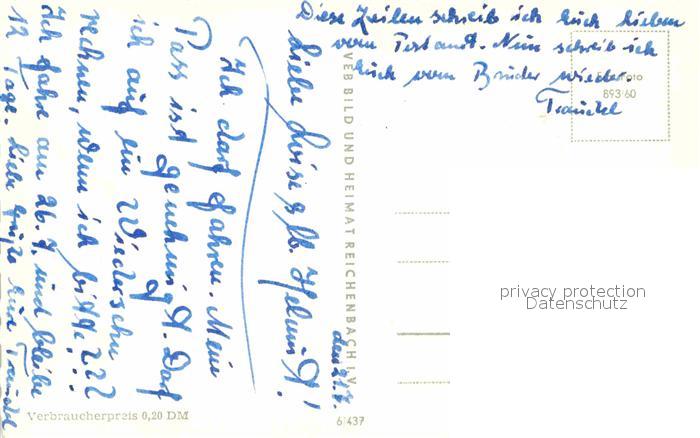 Diese Zeilen schreib ich Euch lieben
vom Postamt. Nun schreib ich
Euch vom Bruder wieder.
Traudel
den 21.7.
Liebe Luise & lb. Helmut!
Ich darf fahren. Mein
Pass ist genehmigt. Darf
ich auf ein Wiedersehn
rechnen, wenn ich bitte???
Ich fahre am 26.7. und bleibe
12 Tage. Liebe Grüße Eure Traudel
VEB BILD UND HEIMAT REICHENBACH I. V.
893/60
Verbraucherpreis 0,20 DM
6/437
privacy protection
Datenschutz